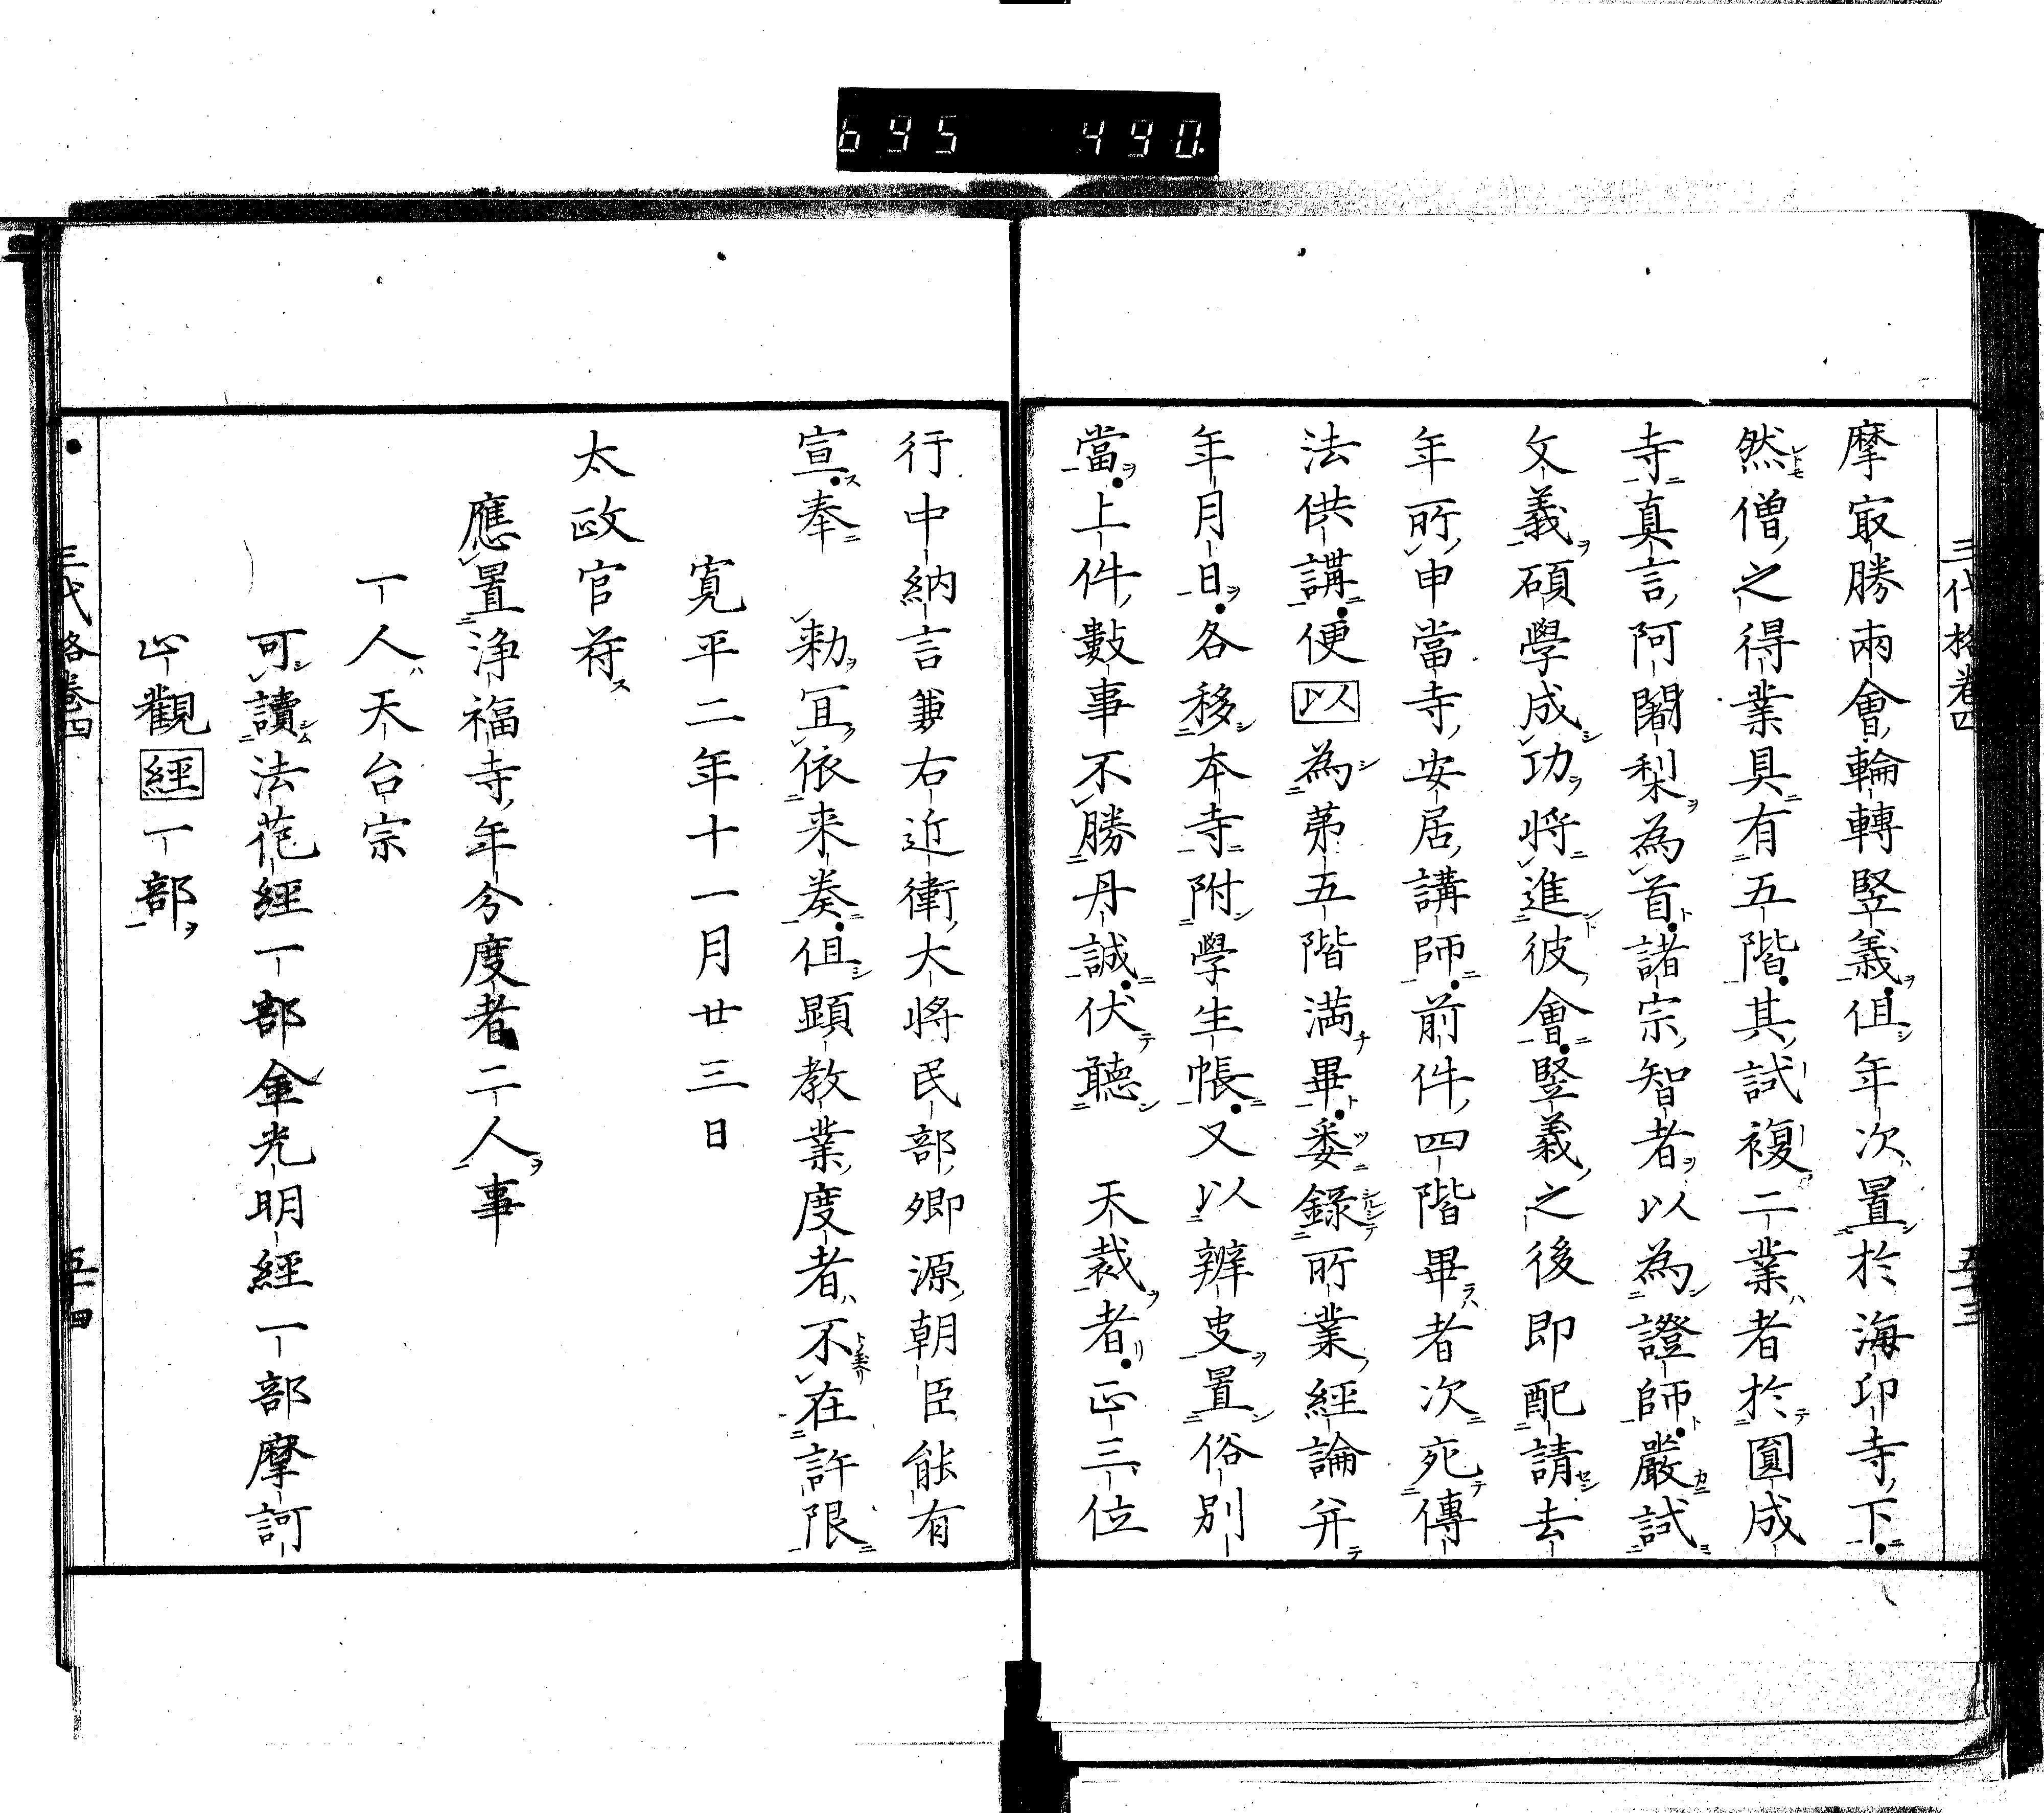 695 490
三代格卷四 五十三
摩㝡勝兩會輪轉竪義但年次置於海印寺下
然僧之得業具有五階其試複二業者於圓成
寺真言阿闍梨為首諸宗智者以為證師嚴試
文義碩學成功將進彼會竪義之後即配請去
年所申當寺安居講師前件四階畢者次宛傳
法供講便以為第五階滿畢委錄所業經論并
年月日各移本寺附學生帳又以辨吏置俗別
當上件數事不勝丹誠伏聽 天裁者正三位
行中納言兼右近衛大將民部卿源朝臣能有
宣奉 勅冝依来奏但顕教業度者不在許限
寛平二年十一月廿三日
太政官符
應置浄福寺年分度者二人事
一人天台宗
可讀法花經一部金光明經一部摩訶
止觀經一部
三代格卷四 五十四